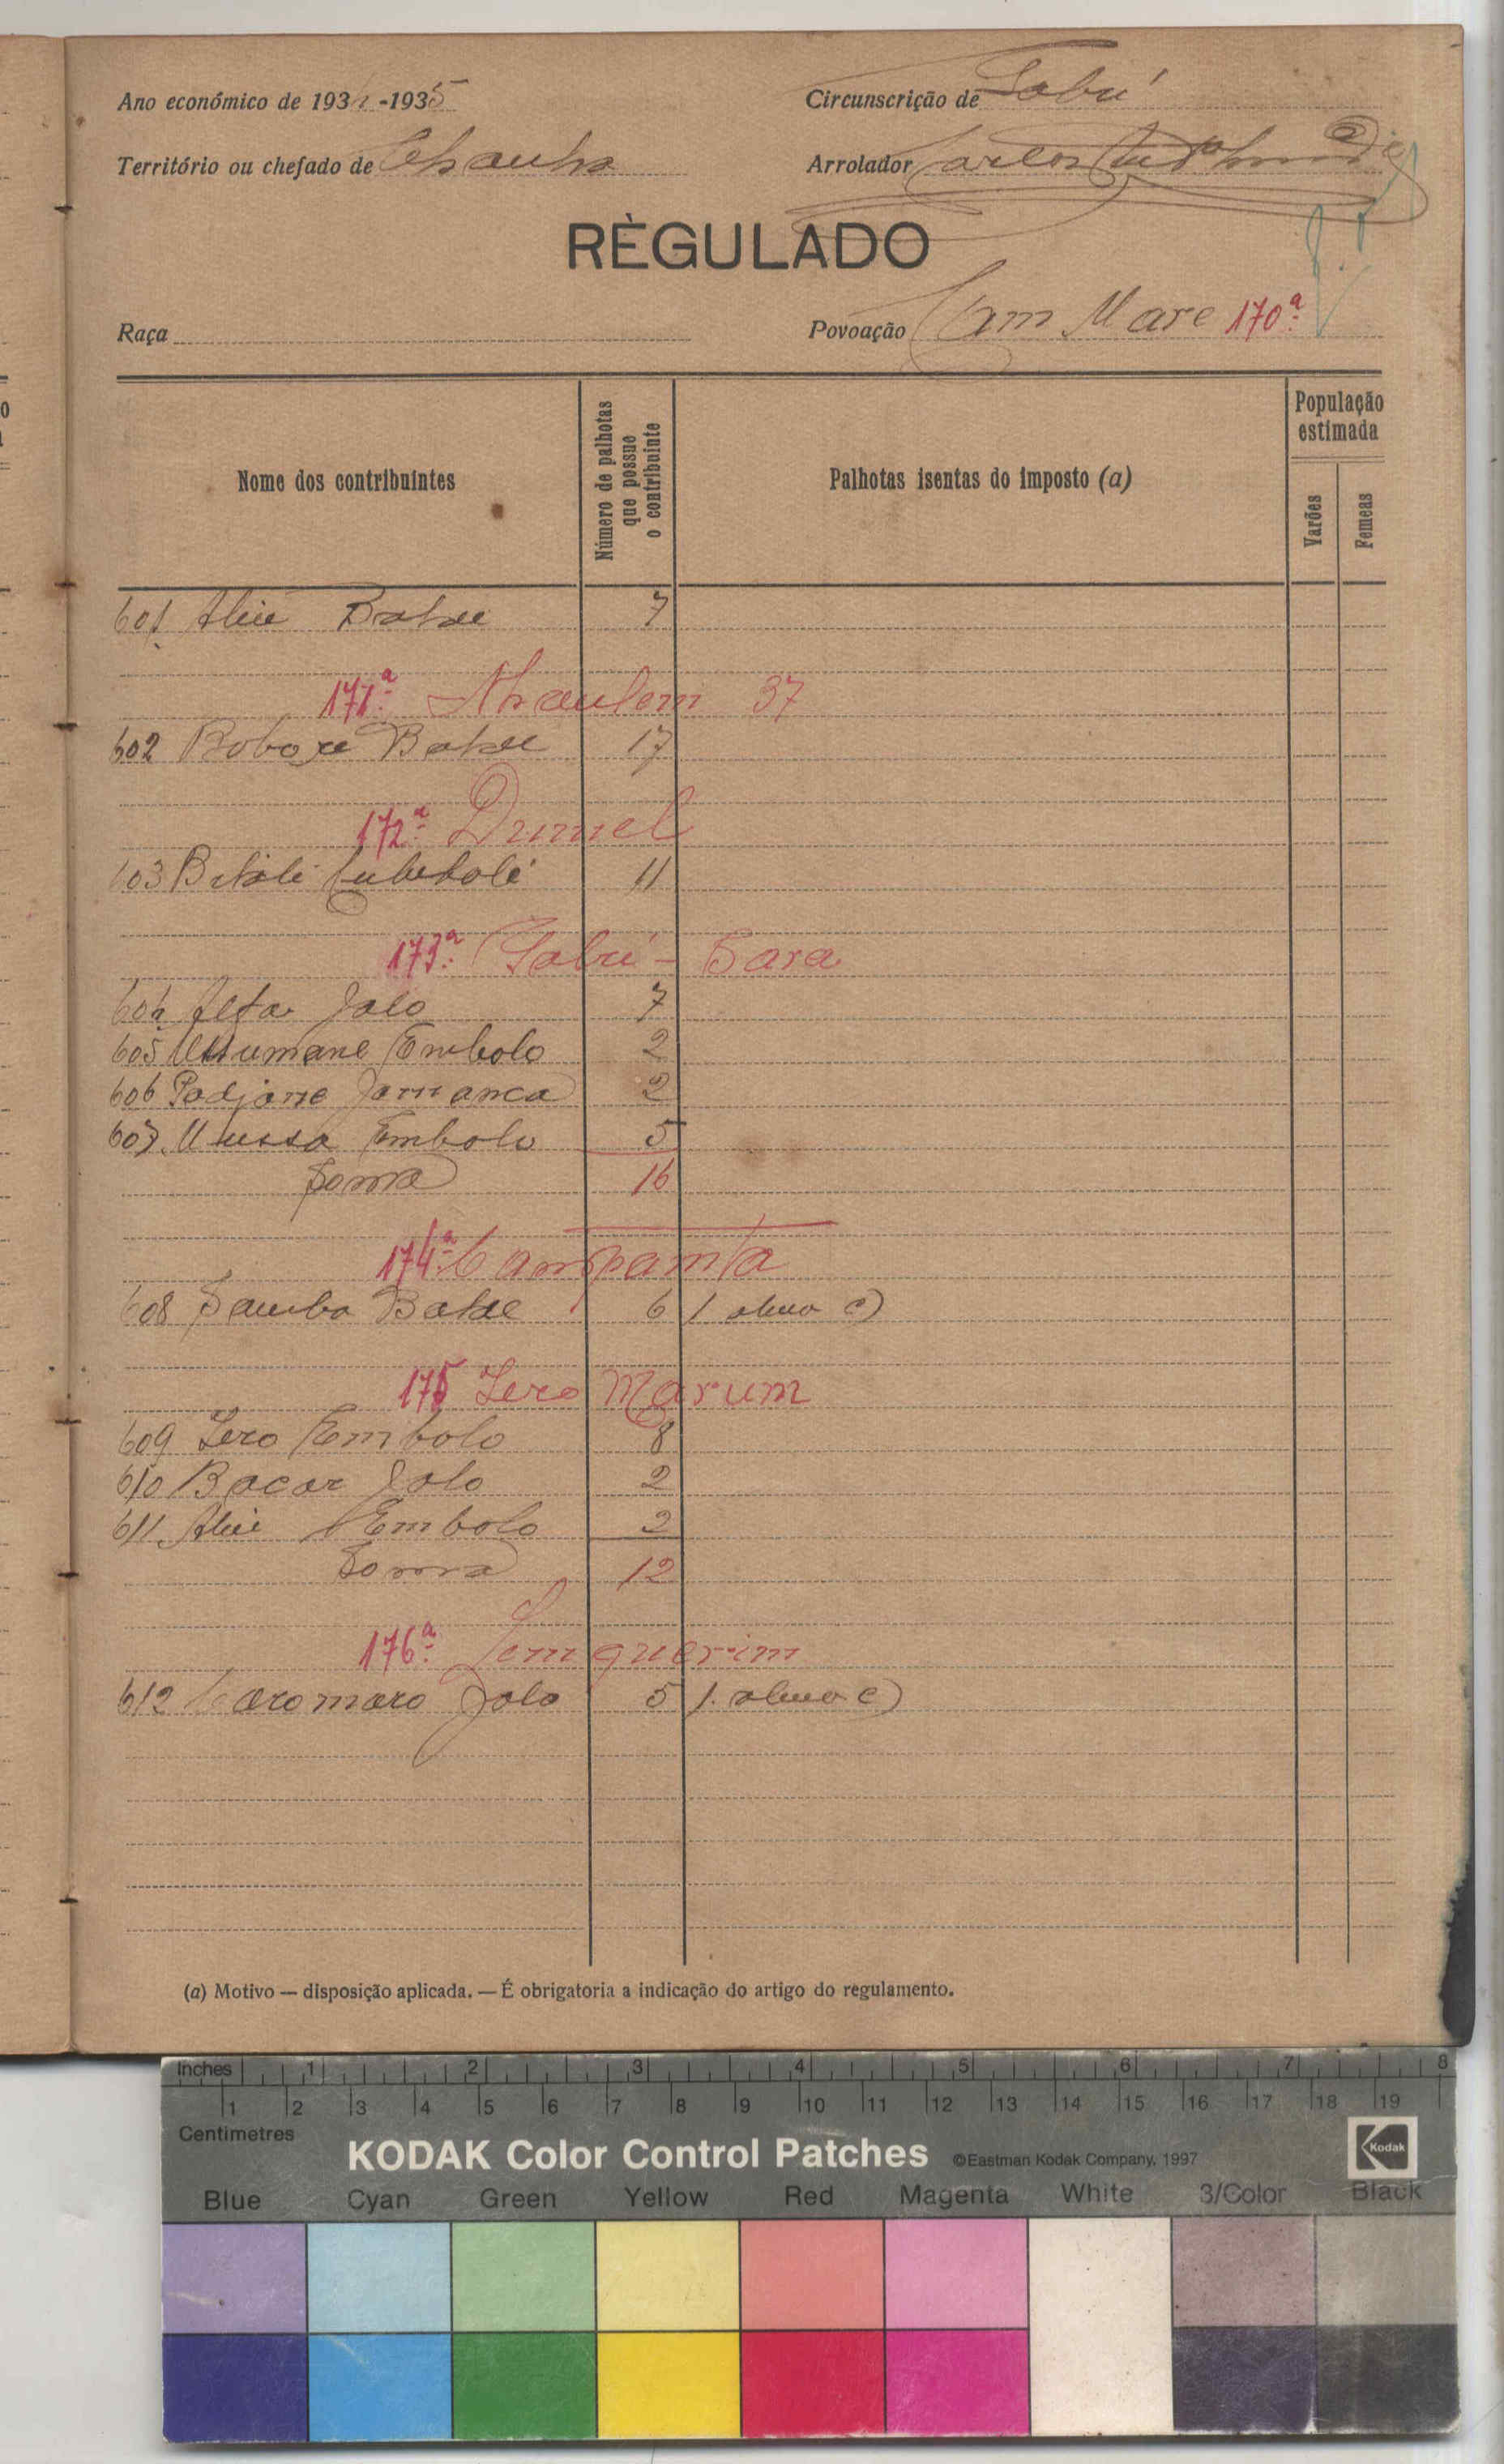 Ano económico de 1934-1935 Circunscrição de Gabú
Território ou chefado de Chanha Arrolador Carlos
RÈGULADO
Raça Povoação Cam Mare 170ª
Nome dos contribuintes
Número de palhotas que possue o contribuinte
Palhotas isentas do imposto (a)
População estimada
Varões
Femeas
601 Aliu Balde 7
171ª 37
602 Balde 17
172ª Dumel
603 11
173ª Gabú - Sara
604 Alfa Jalo 7
605 Ussumane Embolo 2
606 Padjane Jamanca 2
607 Mussa Embolo 5
Soma 16
174ª Campamta
608 Samba Balde 6 1 c)
175 Sero Marum
609 Sero Embolo 8
610 Bacar Jalo 2
611 Aliu Embolo 2
Soma 12
176ª
612 Jalo 5 1 c)
(a) Motivo — disposição aplicada. — É obrigatoria a indicação do artigo do regulamento.
Inches 1 2 3 4 5 6 7 8
1 2 3 4 5 6 7 8 9 10 11 12 13 14 15 16 17 18 19
Centimetres
KODAK Color Control Patches ©Eastman Kodak Company, 1997 Kodak
Blue Cyan Green Yellow Red Magenta White 3/Color Black